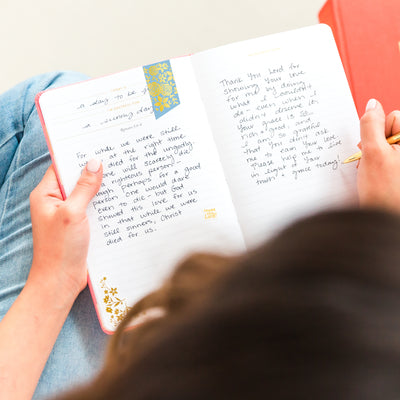 a day to be
a serving day
For while we were still
at the right time
died for the ungodly
one will scarcely die
a righteous person-
though perhaps for a good
person one would dare
even to die- but God
showed His love for us
in that while we were
still sinners, Christ
died for us.
Thank you Lord for
showing your love
for me by doing
what I couldn't
do - even when I
didn't deserve it.
Your grace is so
rich & good, and
I am so grateful
that you didn't
me to
Please help me
in light of your
truth & grace today!